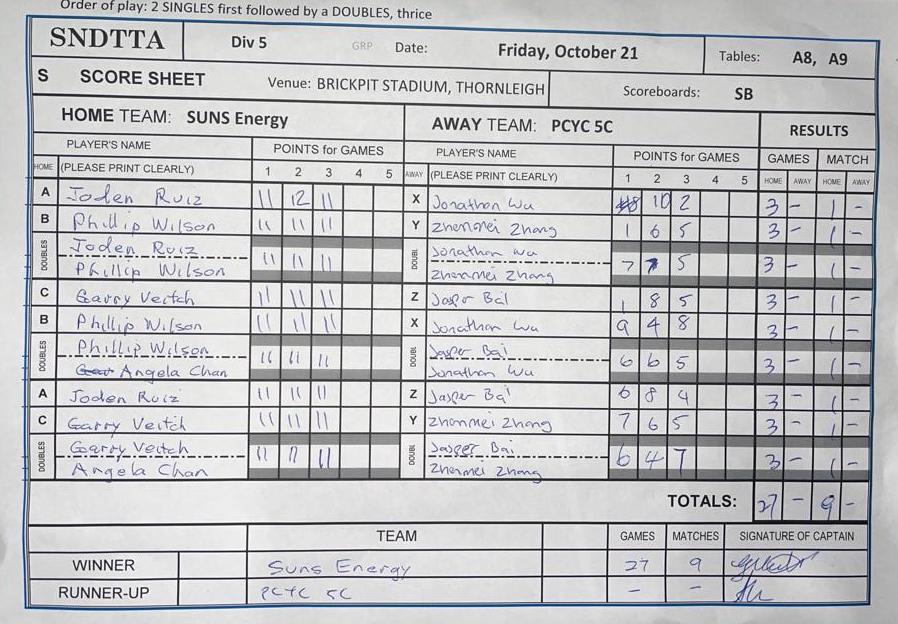 Order of play: 2 SINGLES first followed by a DOUBLES, thrice
SNDTTA Div 5 GRP Date: Friday, October 21 Tables: A8, A9
S SCORE SHEET Venue: BRICKPIT STADIUM, THORNLEIGH Scoreboards: SB
HOME TEAM: SUNS Energy AWAY TEAM: PCYC 5C RESULTS
PLAYER'S NAME POINTS for GAMES PLAYER'S NAME POINTS for GAMES GAMES MATCH
HOME (PLEASE PRINT CLEARLY) 1 2 3 4 5 AWAY (PLEASE PRINT CLEARLY) 1 2 3 4 5 HOME AWAY HOME AWAY
A Joden Ruiz 11 12 11 X Jonathon Wu 8 10 2 3 - 1 -
B Phillip Wilson 11 11 11 Y Zhenmei Zhang 1 6 5 3 - 1 -
DOUBLES Joden Ruiz 11 11 11 DOUBL Jonathon Wu 7 7 5 3 - 1 -
Phillip Wilson Zhenmei Zhang
C Garry Veitch 11 11 11 Z Jasper Bai 1 8 5 3 - 1 -
B Phillip Wilson 11 11 11 X Jonathon Wu 9 4 8 3 - 1 -
DOUBLES Phillip Wilson 11 11 11 DOUBL Jasper Bai 6 6 5 3 - 1 -
Angela Chan Jonathon Wu
A Joden Ruiz 11 11 11 Z Jasper Bai 6 8 4 3 - 1 -
C Garry Veitch 11 11 11 Y Zhenmei Zhang 7 6 5 3 - 1 -
DOUBLES Garry Veitch 11 11 11 DOUBL Jasper Bai 6 4 7 3 - 1 -
Angela Chan Zhenmei Zhang
TOTALS: 27 - 9 -
TEAM GAMES MATCHES SIGNATURE OF CAPTAIN
WINNER Suns Energy 27 9
RUNNER-UP PCYC 5C - -